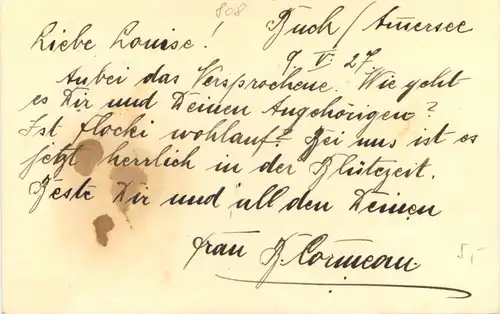 808
Liebe Louise! Buch / Am̅ersee
9. V. 27.
Anbei das Versprochene. Wie geht
es Dir und Deinen Angehörigen?
Ist Flocki wohlauf? Bei uns ist es
jetzt herrlich in der Blütezeit.
Beste Dir und all den Deinen
Frau B. Cormeau.
5,-